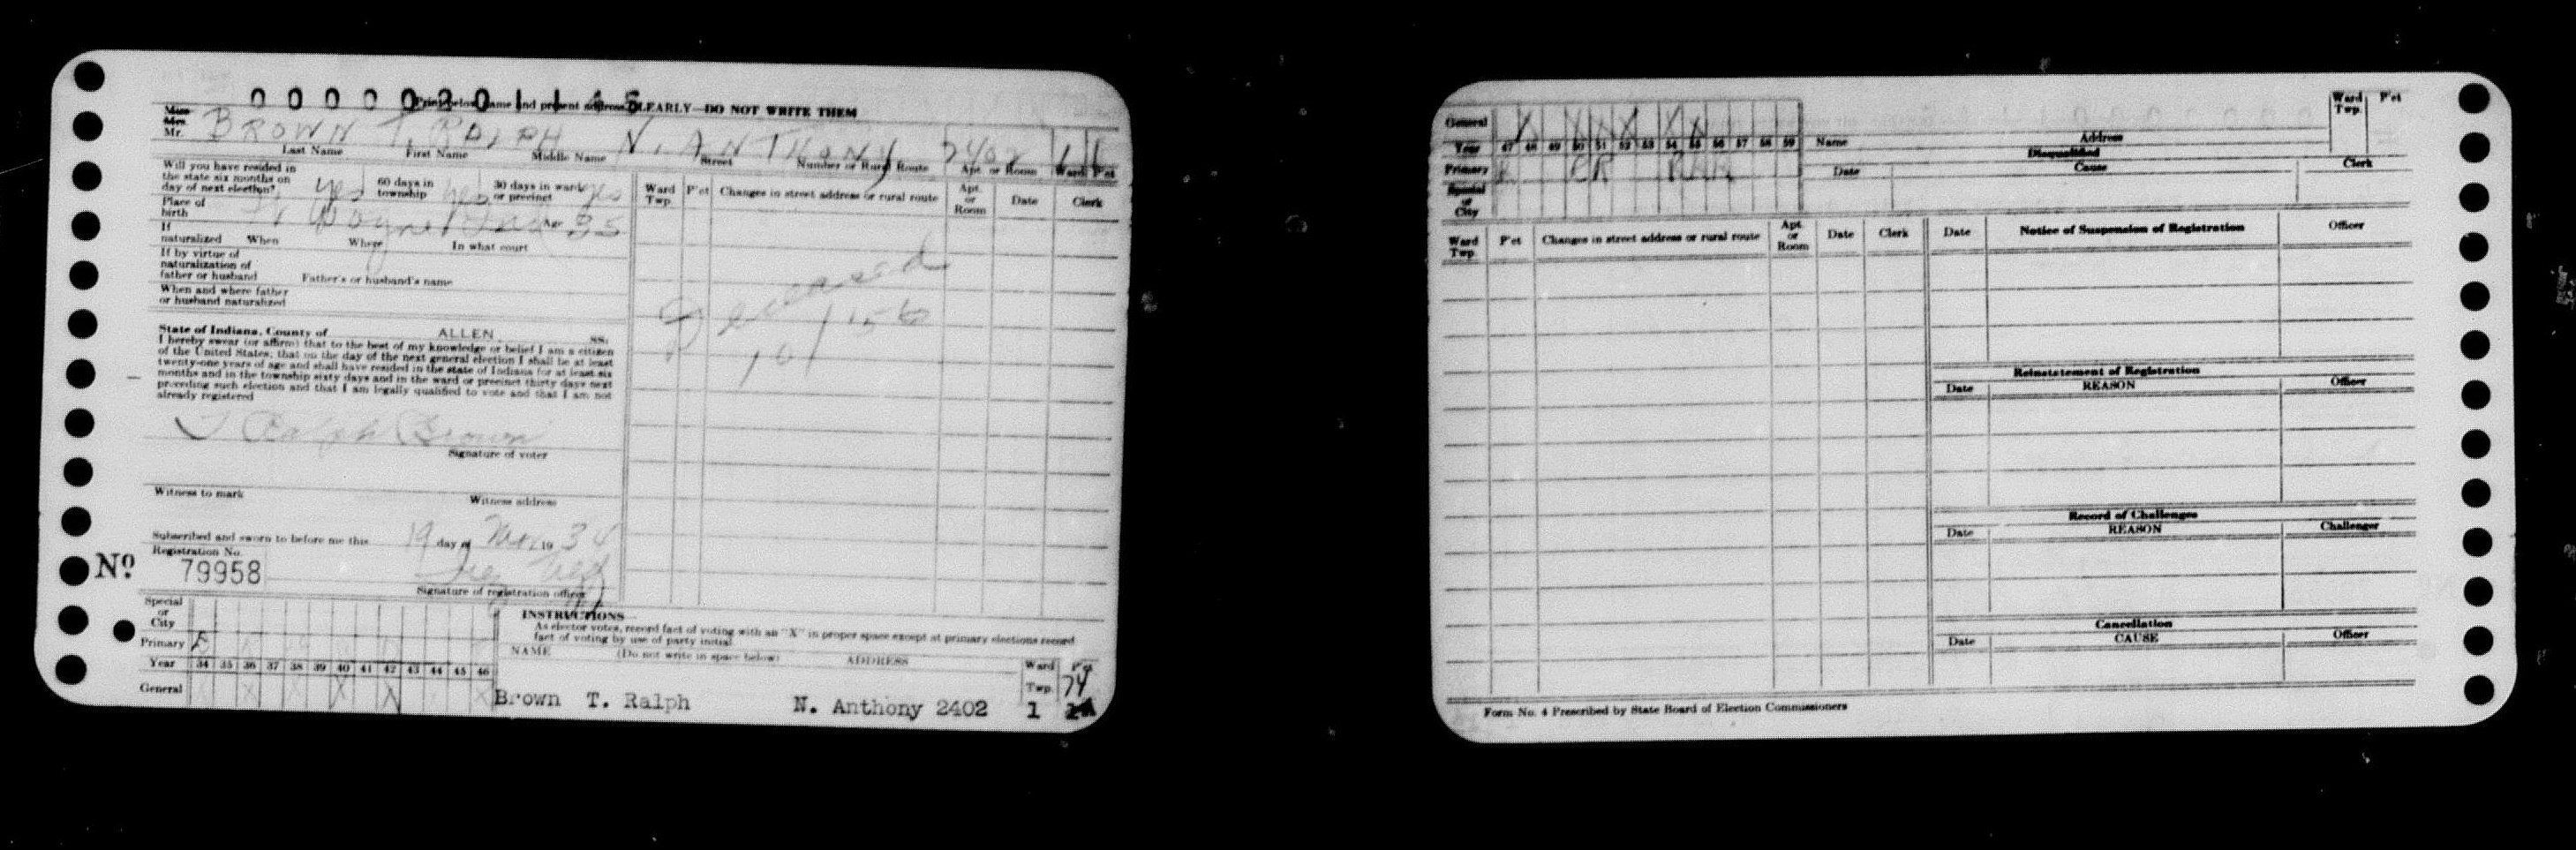 Print below name and present address CLEARLY—DO NOT WRITE THEM
Miss
Mrs.
Mr. BROWN T. RALPH N. ANTHONY 2402 1
Last Name First Name Middle Name Street Number or Rural Route Apt. or Room Ward P'ct
Will you have resided in
the state six months on
day of next election? yes 60 days in township yes 30 days in ward or precinct yes
Place of birth Ft Wayne Ind Age 35
If naturalized When Where In what court
If by virtue of
naturalization of
father or husband Father's or husband's name
When and where father
or husband naturalized
State of Indiana, County of ALLEN, SS:
I hereby swear (or affirm) that to the best of my knowledge or belief I am a citizen
of the United States; that on the day of the next general election I shall be at least
twenty-one years of age and shall have resided in the state of Indiana for at least six
months and in the township sixty days and in the ward or precinct thirty days next
preceding such election and that I am legally qualified to vote and that I am not
already registered
T Ralph Brown
Signature of voter
Witness to mark Witness address
Subscribed and sworn to before me this 19 day of 19 34
Registration No.
Nº 79958
Signature of registration officer
Ward Twp. P'ct Changes in street address or rural route Apt. or Room Date Clerk
Deceased
Special or City
Primary
Year 34 35 36 37 38 39 40 41 42 43 44 45 46
General X X X X X X
INSTRUCTIONS
As elector votes, record fact of voting with an "X" in proper space except at primary elections record
fact of voting by use of party initial
NAME (Do not write in space below) ADDRESS Ward Twp. P'ct
74
Brown T. Ralph N. Anthony 2402 1
General X X X X X X
Year 47 48 49 50 51 52 53 54 55 56 57 58 59
Primary R R R R R
Special or City
Name Address Ward Twp. P'ct
Disqualified
Date Cause Clerk
Ward Twp. P'ct Changes in street address or rural route Apt. or Room Date Clerk
Date Notice of Suspension of Registration Officer
Reinstatement of Registration
Date REASON Officer
Record of Challenges
Date REASON Challenger
Cancellation
Date CAUSE Officer
Form No. 4 Prescribed by State Board of Election Commissioners